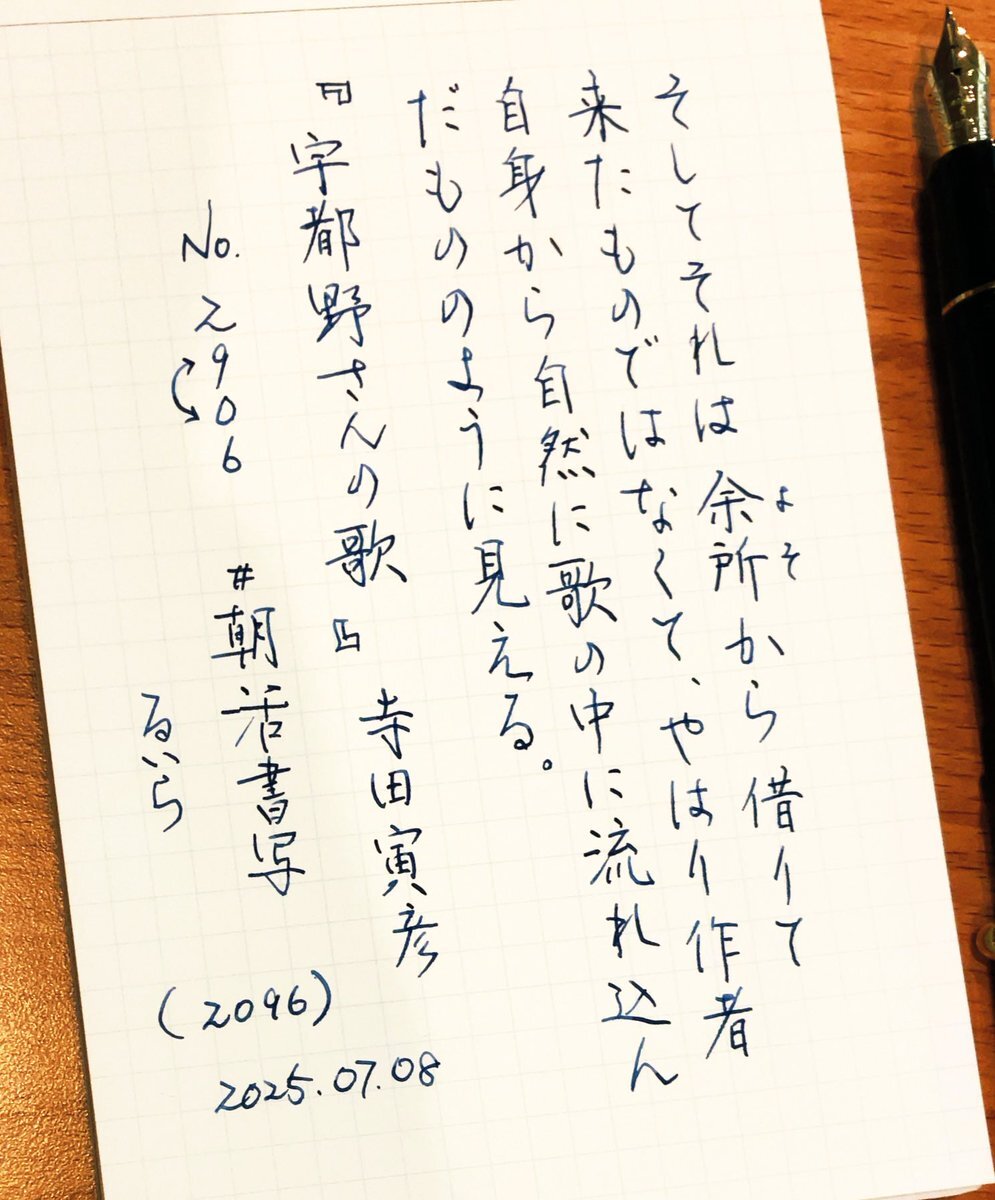 そしてそれは余所から借りて
よそ
来たものではなくて、やはり作者
自身から自然に歌の中に流れ込ん
だもののように見える。
『宇都野さんの歌』 寺田寅彦
No. 2906 #朝活書写
るいら
(2096)
2025.07.08